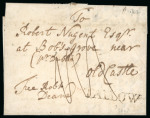 To
Robert Nugent Esqr
at Bobsgrove near
Old Castle
Free Robt
Deane